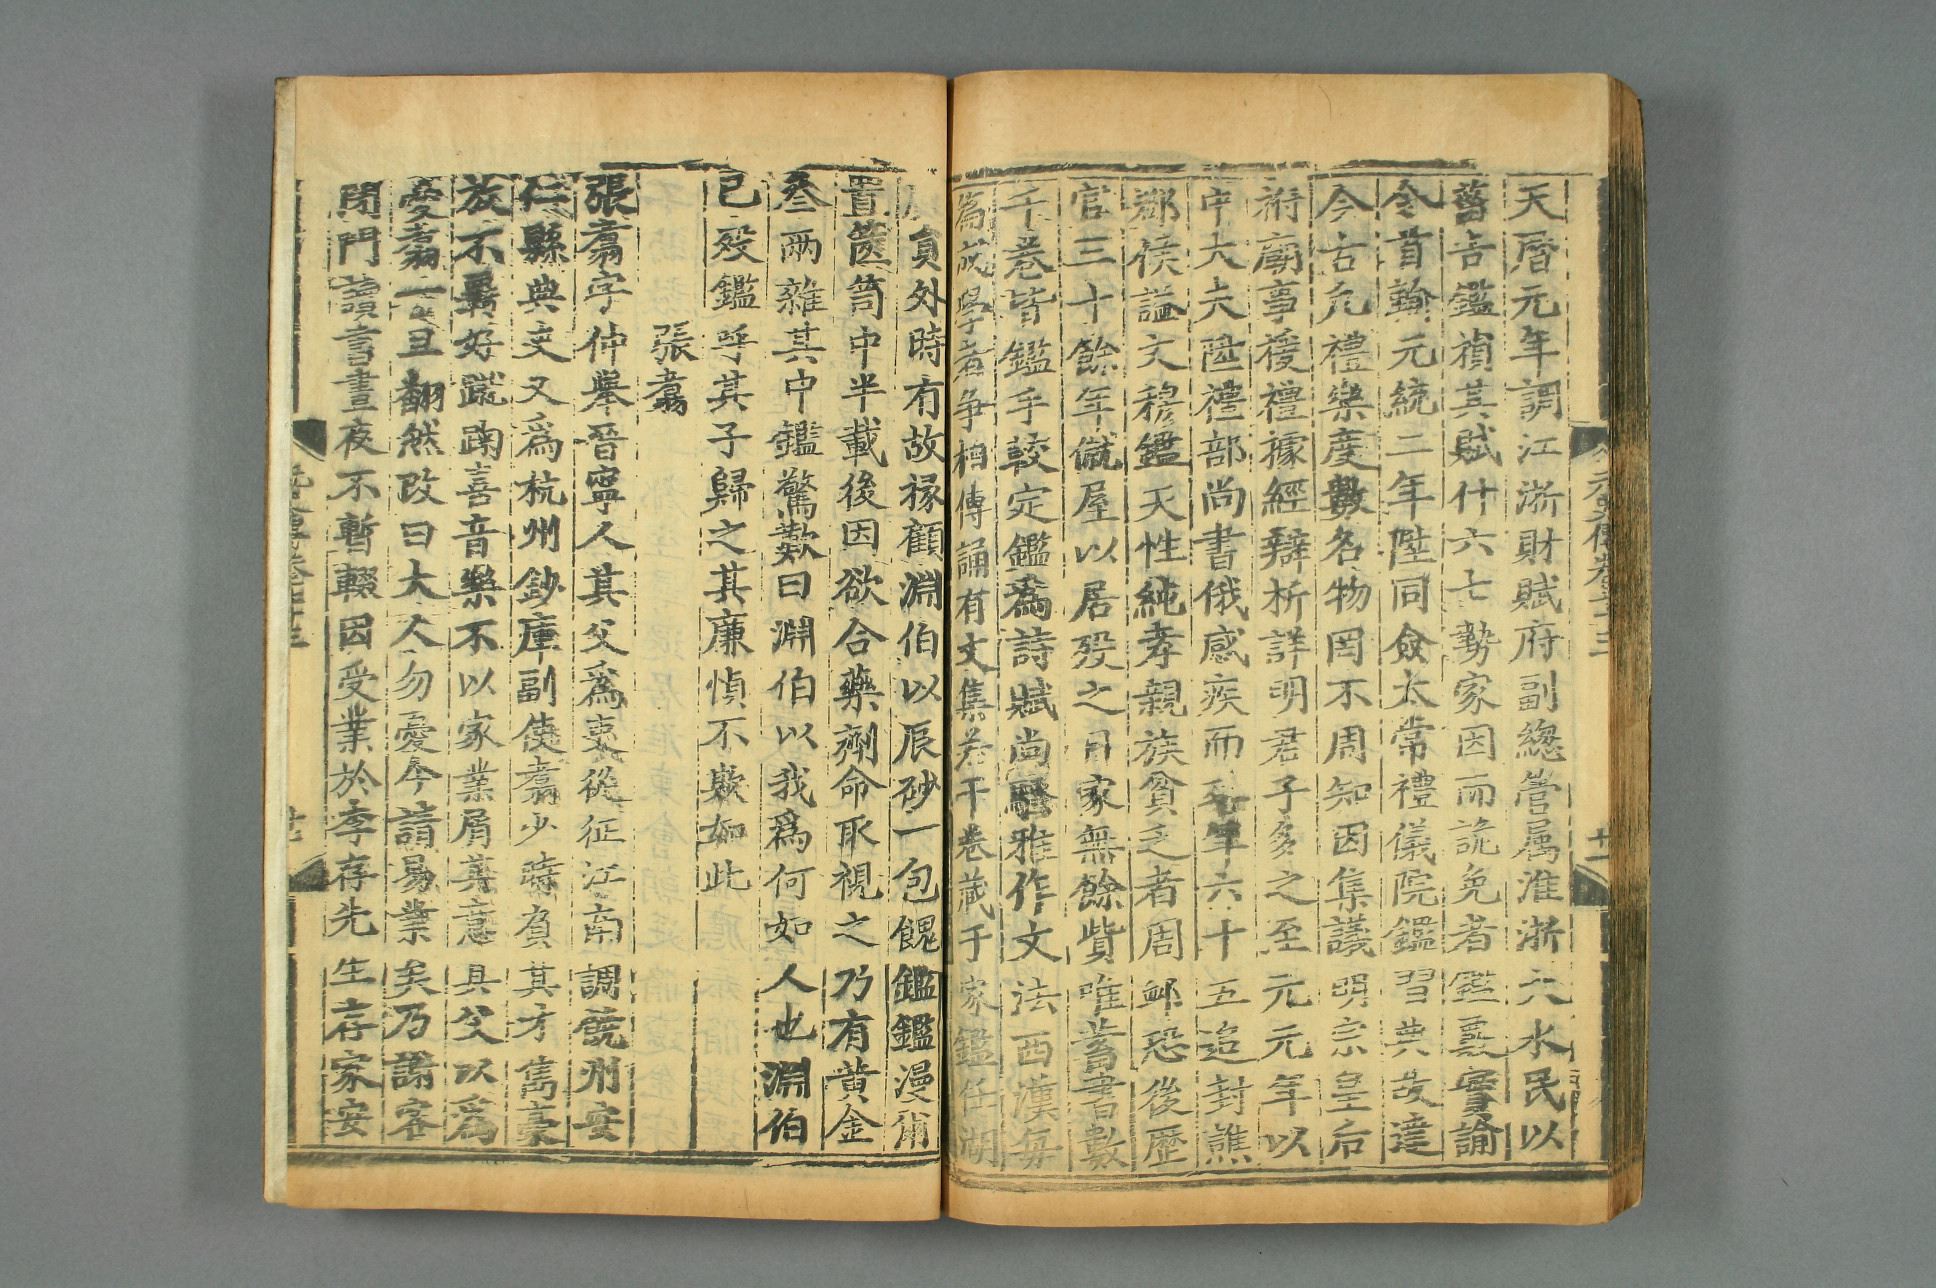 天曆元年調江浙財賦府副總管屬淮浙大水民以
菑告鑑損其賦什六七勢家因而詭免者鑑裏寧諭
令首輸元統二年陞同僉太常禮儀院鑑習典故達
今古凡禮樂度數名物罔不周知因集議明宗皇后
祔廟事援禮據經辯析詳明君子多之至元元年以
中大夫陞禮部尚書俄感疾而年六十五追封譙
郡侯諡文穆鑑天性純孝親族貧乏者周卹恐後歷
官三十餘年僦屋以居歿之日家無餘貲唯蓄書數
千卷皆鑑手較定鑑為詩賦尚騷雅作文法西漢每
篇成學者争相傳誦有文集若干卷藏于家鑑任湖
員外時有故掾顧淵伯以辰砂一包餽鑑鑑漫爾
置篋笥中半載後因欲合藥劑命取視之乃有黄金
叁兩雜其中鑑驚歎曰淵伯以我爲何如人也淵伯
已殁鑑呼其子歸之其廉慎不欺如此
張翥
張翥字仲舉晉寧人其父爲吏從征江南調饒州安
仁縣典史又爲杭州鈔庫副使翥少時負其才雋豪
放不羈好蹴踘喜音樂不以家業屑其意其父以爲
憂翥一旦翻然改曰大人勿憂今請易業矣乃謝客
閉門讀書晝夜不暫輟因受業於李存先生存家安
元史傳卷七十三
十一